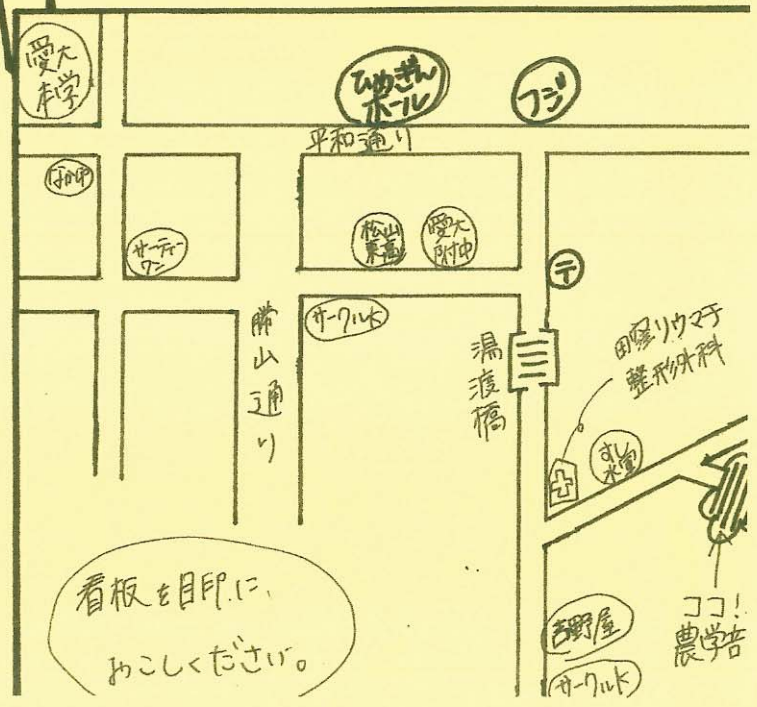 愛大
本学
ひめぎん
ホール
フジ
平和通り
なか卯
サーティー
ワン
松山
東高
愛大
附中
〒
サークルK
勝山通り
湯渡橋
田窪リウマチ
整形外科
すし
水軍
看板を目印に、
おこしください。
吉野屋
サークルK
ココ!
農学部